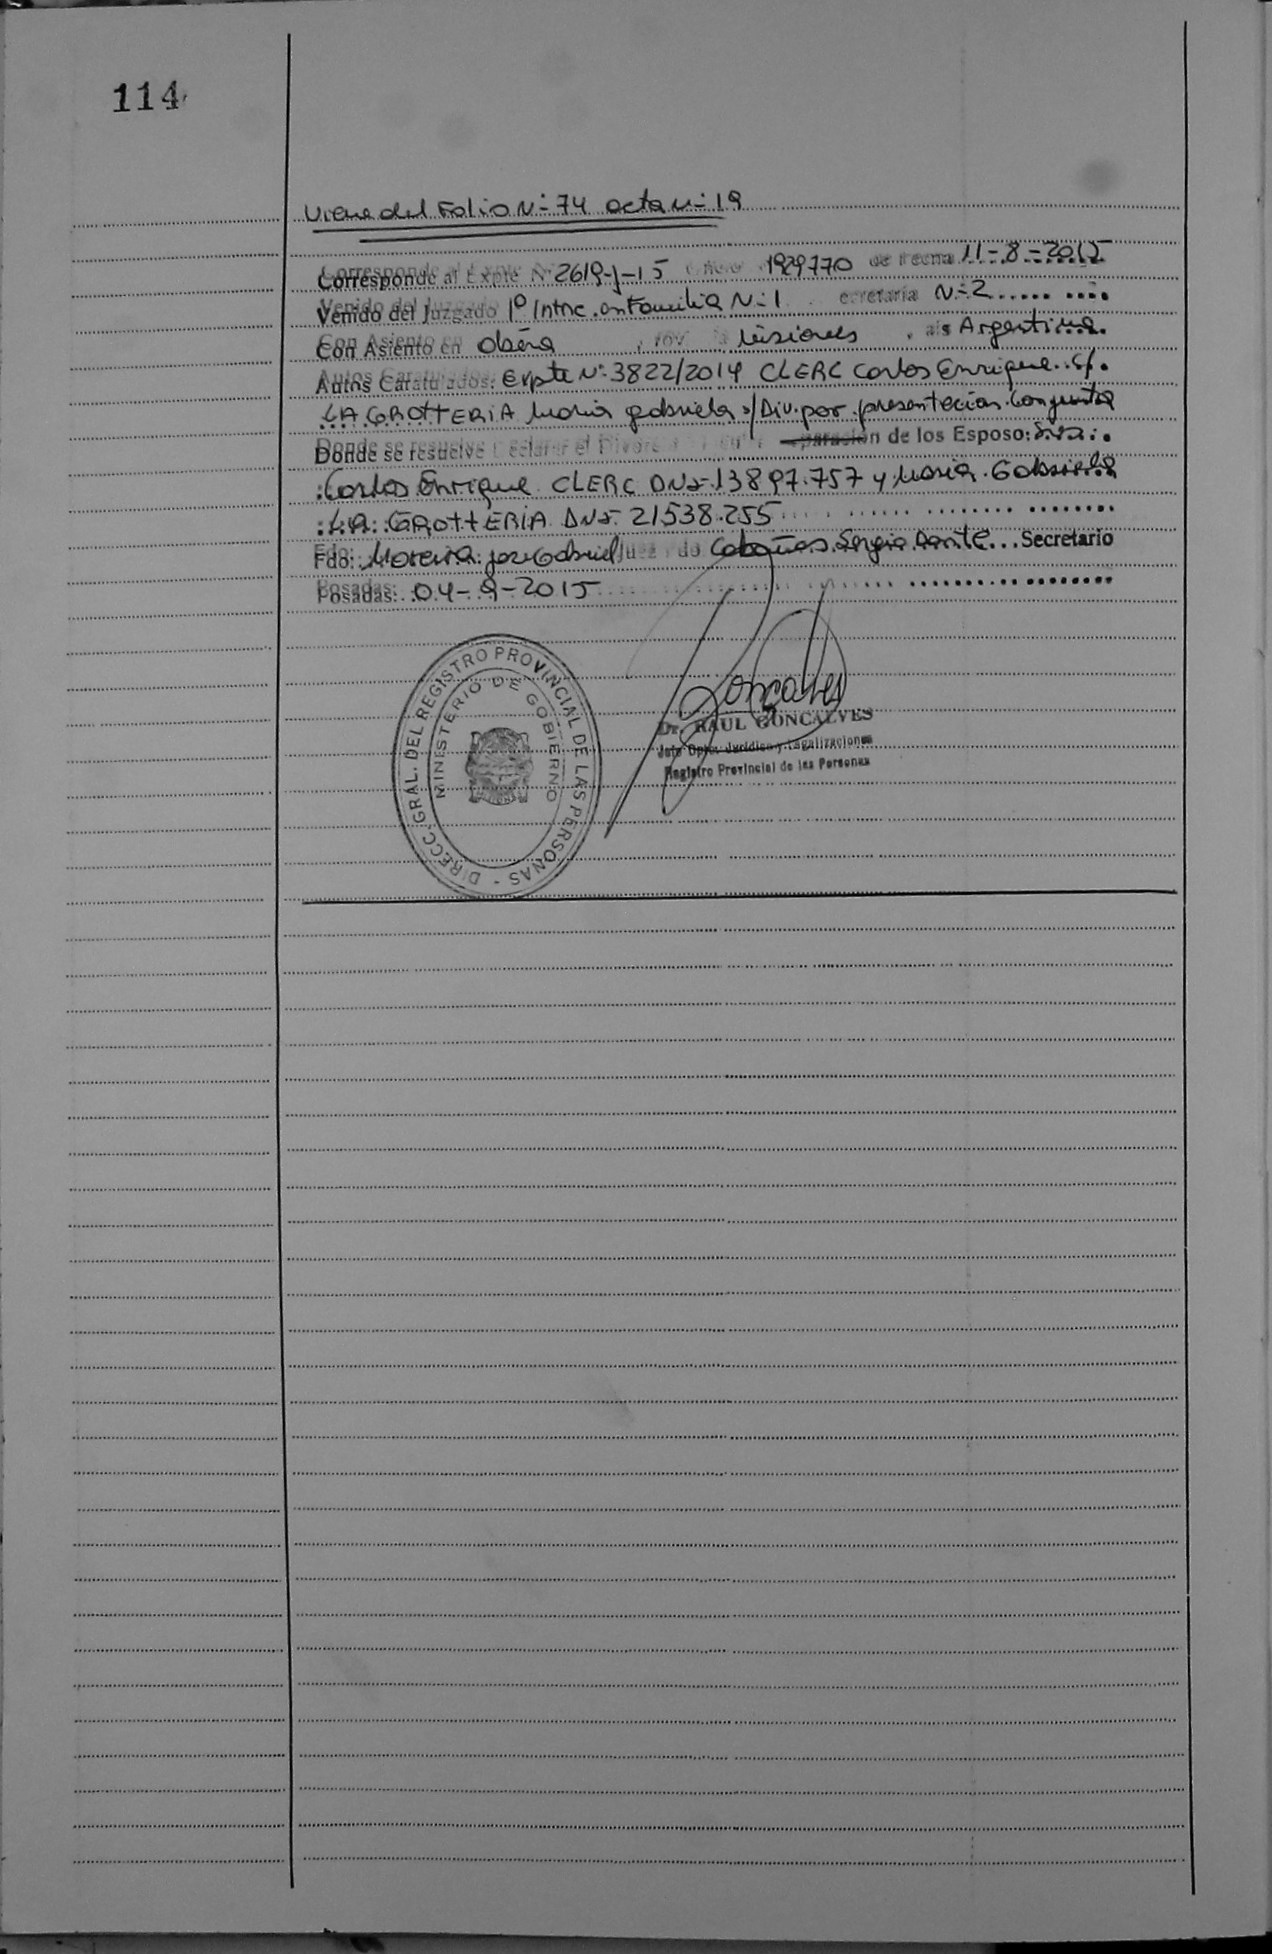 114
Viene del Folio N- 74 acta N- 19
Corresponde al Expte N 2619-J-15 1929770 de Fecha 11-8-2015
Venido del Juzgado 1º Intnc. en Familia N-1 ecretaria N-2
Con Asiento en Oberá , rov Misiones , ais Argentina.
Autos Caratulados: Expte N- 3822/2014 CLERC Carlos Enrique S/.
LA GROTTERIA Maria gabriela s/Div. por presentacion Conjunta
Donde se resuelve Declarar el Divorc paración de los Esposo:
Carlos Enrique CLERC DNI- 13897.757 y Maria Gabriela
LA GROTTERIA DNI- 21538.255
Fdo: Moreira jose Gabriel Juez do Cabañas Sergio Dante... Secretario
Posadas: 04-9-2015
DIRECC. GRAL. DEL REGISTRO PROVINCIAL DE LAS PERSONAS -
MINISTERIO DE GOBIERNO
Goncalves
Dr. RAUL GONCALVES
Jefe Dpto. Jurídico y Legalizaciones
Registro Provincial de las Personas